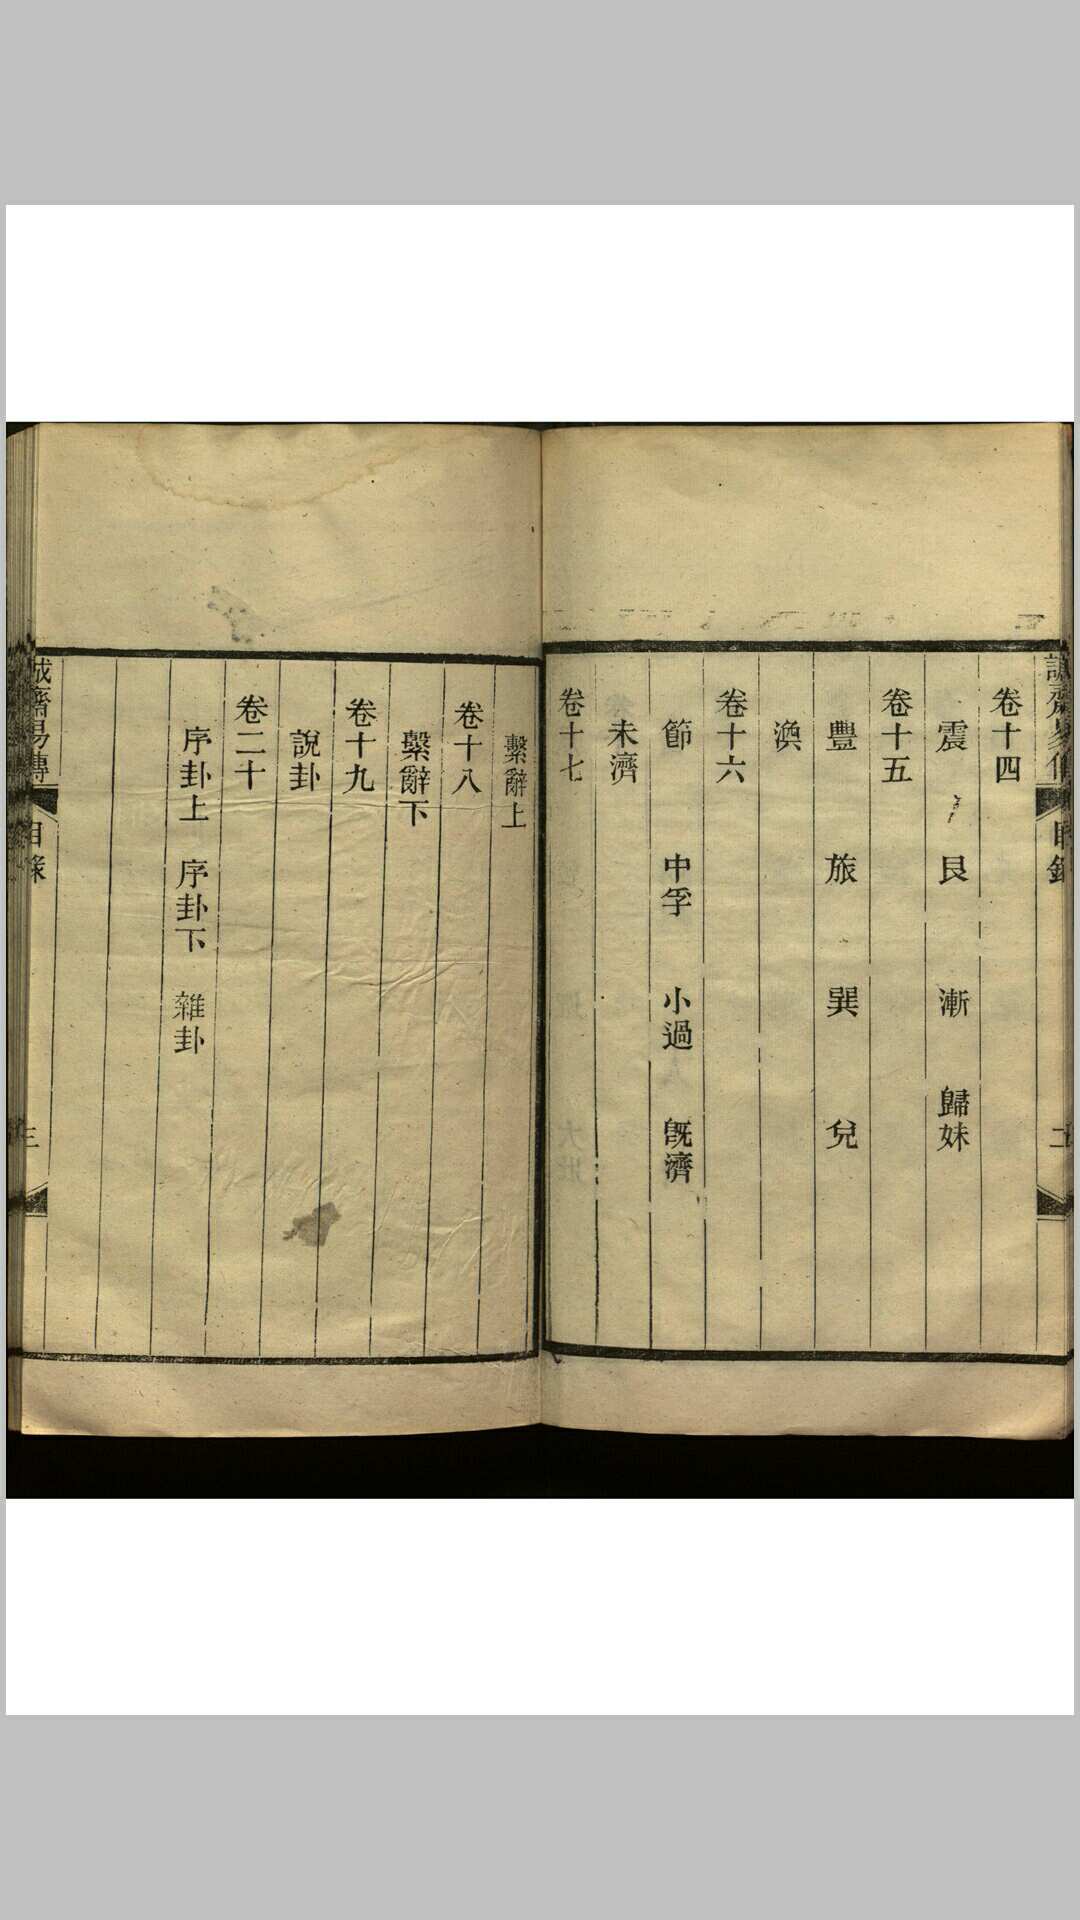 誠齋易傳 目錄 二
卷十四
震 艮 漸 歸妹
卷十五
豐 旅 巽 兌
渙
卷十六
節 中孚 小過 既濟
未濟
卷十七
繫辭上
卷十八
繫辭下
卷十九
說卦
卷二十
序卦上 序卦下 雜卦
誠齋易傳 目錄 三